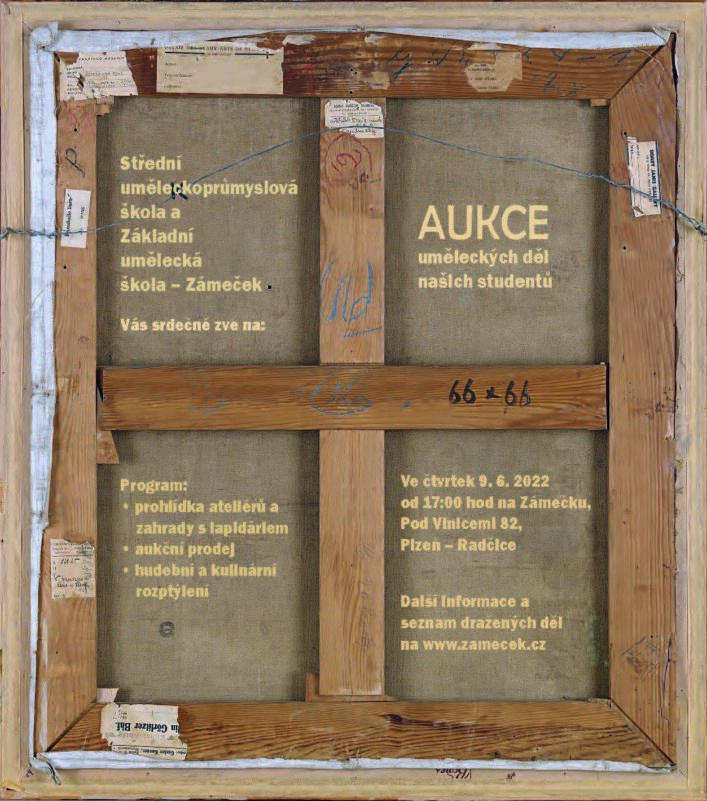 Střední
uměleckoprůmyslová
škola a
Základní
umělecká
škola – Zámeček
Vás srdečně zve na:
AUKCE
uměleckých děl
našich studentů
66 x 66
Program:
• prohlídka ateliérů a
zahrady s lapidáriem
• aukční prodej
• hudební a kulinární
rozptýlení
Ve čtvrtek 9. 6. 2022
od 17:00 hod na Zámečku,
Pod Vinicemi 82,
Plzeň – Radčice
Další informace a
seznam dražených děl
na www.zamecek.cz
lin Görlitzer Bhf.